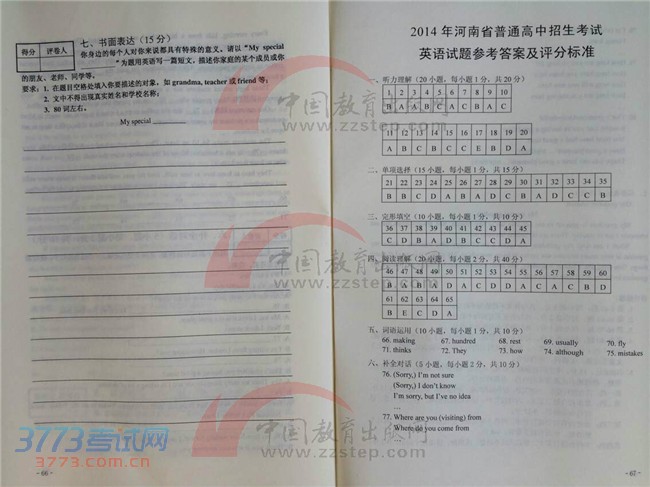 得分 评卷人
七、书面表达（15 分）
你身边的每个人对你来说都具有特殊的意义。请以“My special
”为题用英语写一篇短文，描述你家庭的某个成员或你
的朋友、老师、同学等。
要求：1. 在题目空格处填入你要描述的对象，如 grandma, teacher 或 friend 等；
2. 文中不得出现真实姓名和学校名称；
3. 80 词左右。
My special
- 66 -
2014 年河南省普通高中招生考试
英语试题参考答案及评分标准
一、听力理解（20 小题，每小题 1 分，共 20 分）
1 2 3 4 5 6 7 8 9 10
11 12 13 14 15 16 17 18 19 20
A B C B C C E B D A
二、单项选择（15 小题，每小题 1 分，共 15 分）
21 22 23 24 25 26 27 28 29 30 31 32 33 34 35
三、完形填空（10 小题，每小题 1 分，共 10 分）
36 37 38 39 40 41 42 43 44 45
四、阅读理解（20 小题，每小题 2 分，共 40 分）
46 47 48 49 50 51 52 53 54 55 56 57 58 59 60
61 62 63 64 65
B E C D A
五、词语运用（10 小题，每小题 1 分，共 10 分）
66. making 67. hundred 68. rest 69. usually 70. fly
71. thinks 72. They 73. how 74. although 75. mistakes
六、补全对话（5 小题，每小题 2 分，共 10 分）
76. (Sorry,) I'm not sure
(Sorry,) I don't know
I'm sorry, but I've no idea
…
77. Where are you (visiting) from
Where do you come from
- 67 -
中国教育出版网
www.zzstep.com
中国教育出版网
www.zzstep.com
中国教育出版网
www.zzstep.com
3773考试网
3773.com.cn